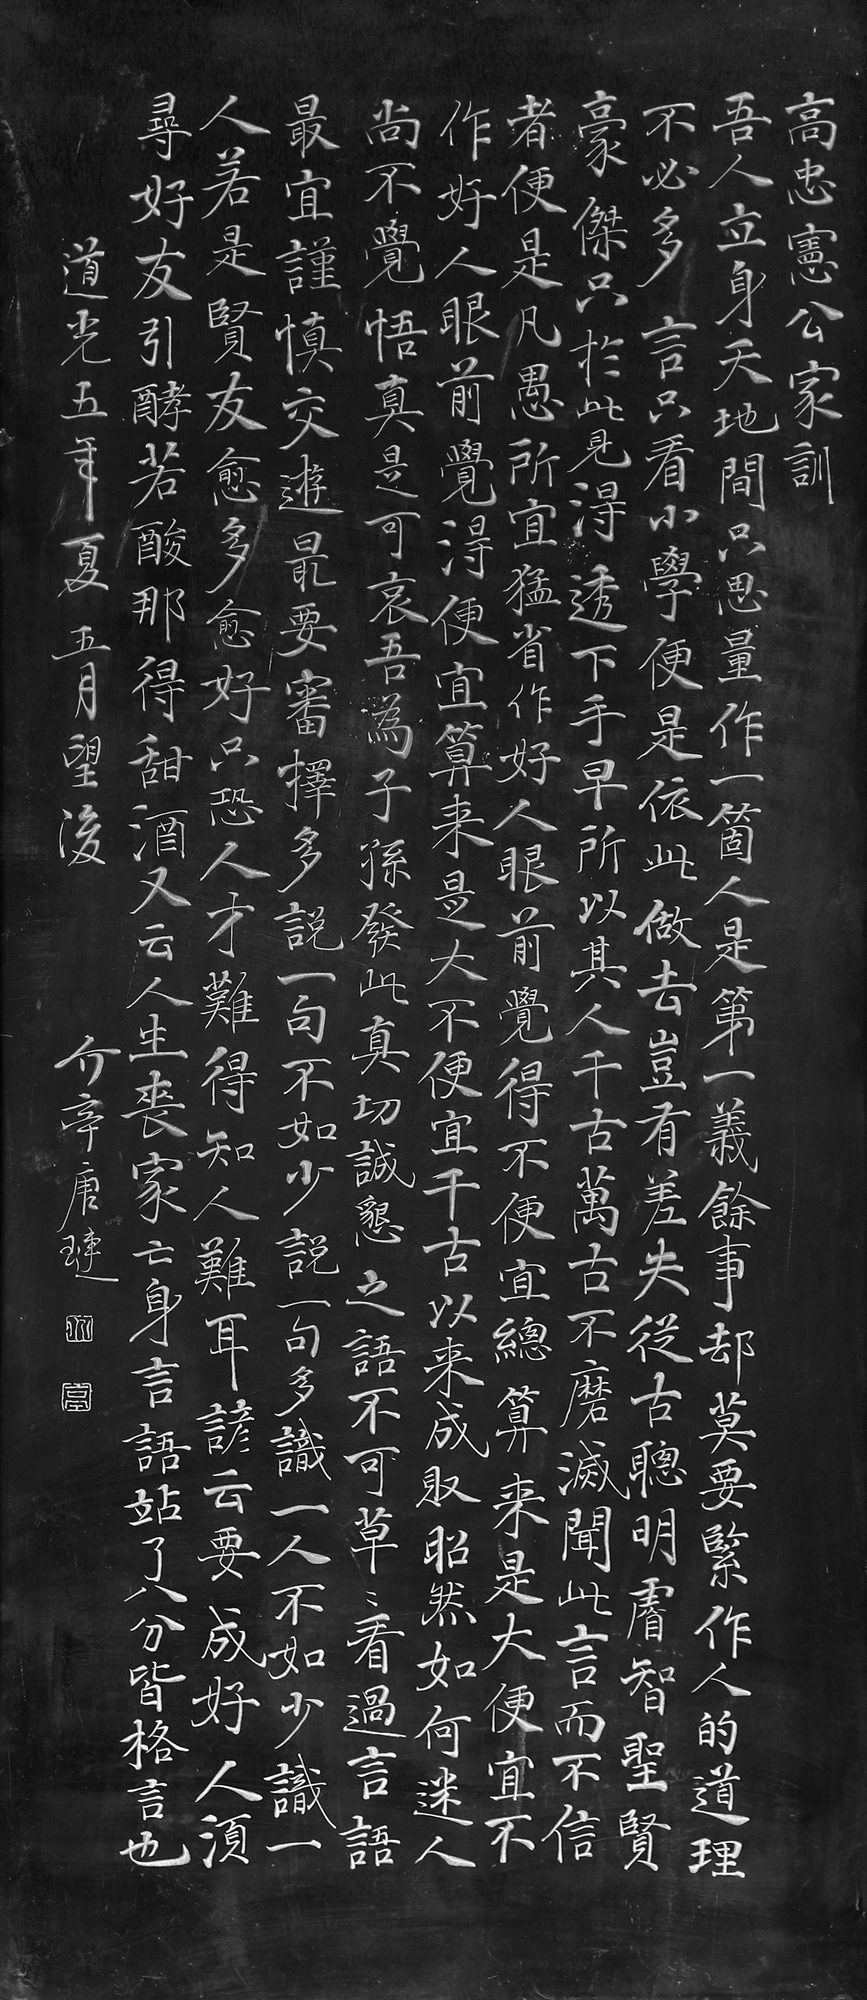 高忠憲公家訓
吾人立身天地間只思量作一箇人是第一義餘事却莫要緊作人的道理
不必多言只看小學便是依此做去豈有差失從古聰明睿智聖賢
豪傑只於此見得透下手早所以其人千古萬古不磨滅聞此言而不信
者便是凡愚所宜猛省作好人眼前覺得不便宜總算来是大便宜不
作好人眼前覺得便宜算来是大不便宜千古以来成敗昭然如何迷人
尚不覺悟真是可哀吾為子孫發此真切誠懇之語不可草〻看過言語
最宜謹慎交遊最要審擇多説一句不如少説一句多識一人不如少識一
人若是賢友愈多愈好只恐人才難得知人難耳諺云要成好人須
尋好友引酵若酸那得甜酒又云人生喪家亡身言語站了八分皆格言也
道光五年夏五月望後 介亭唐璉